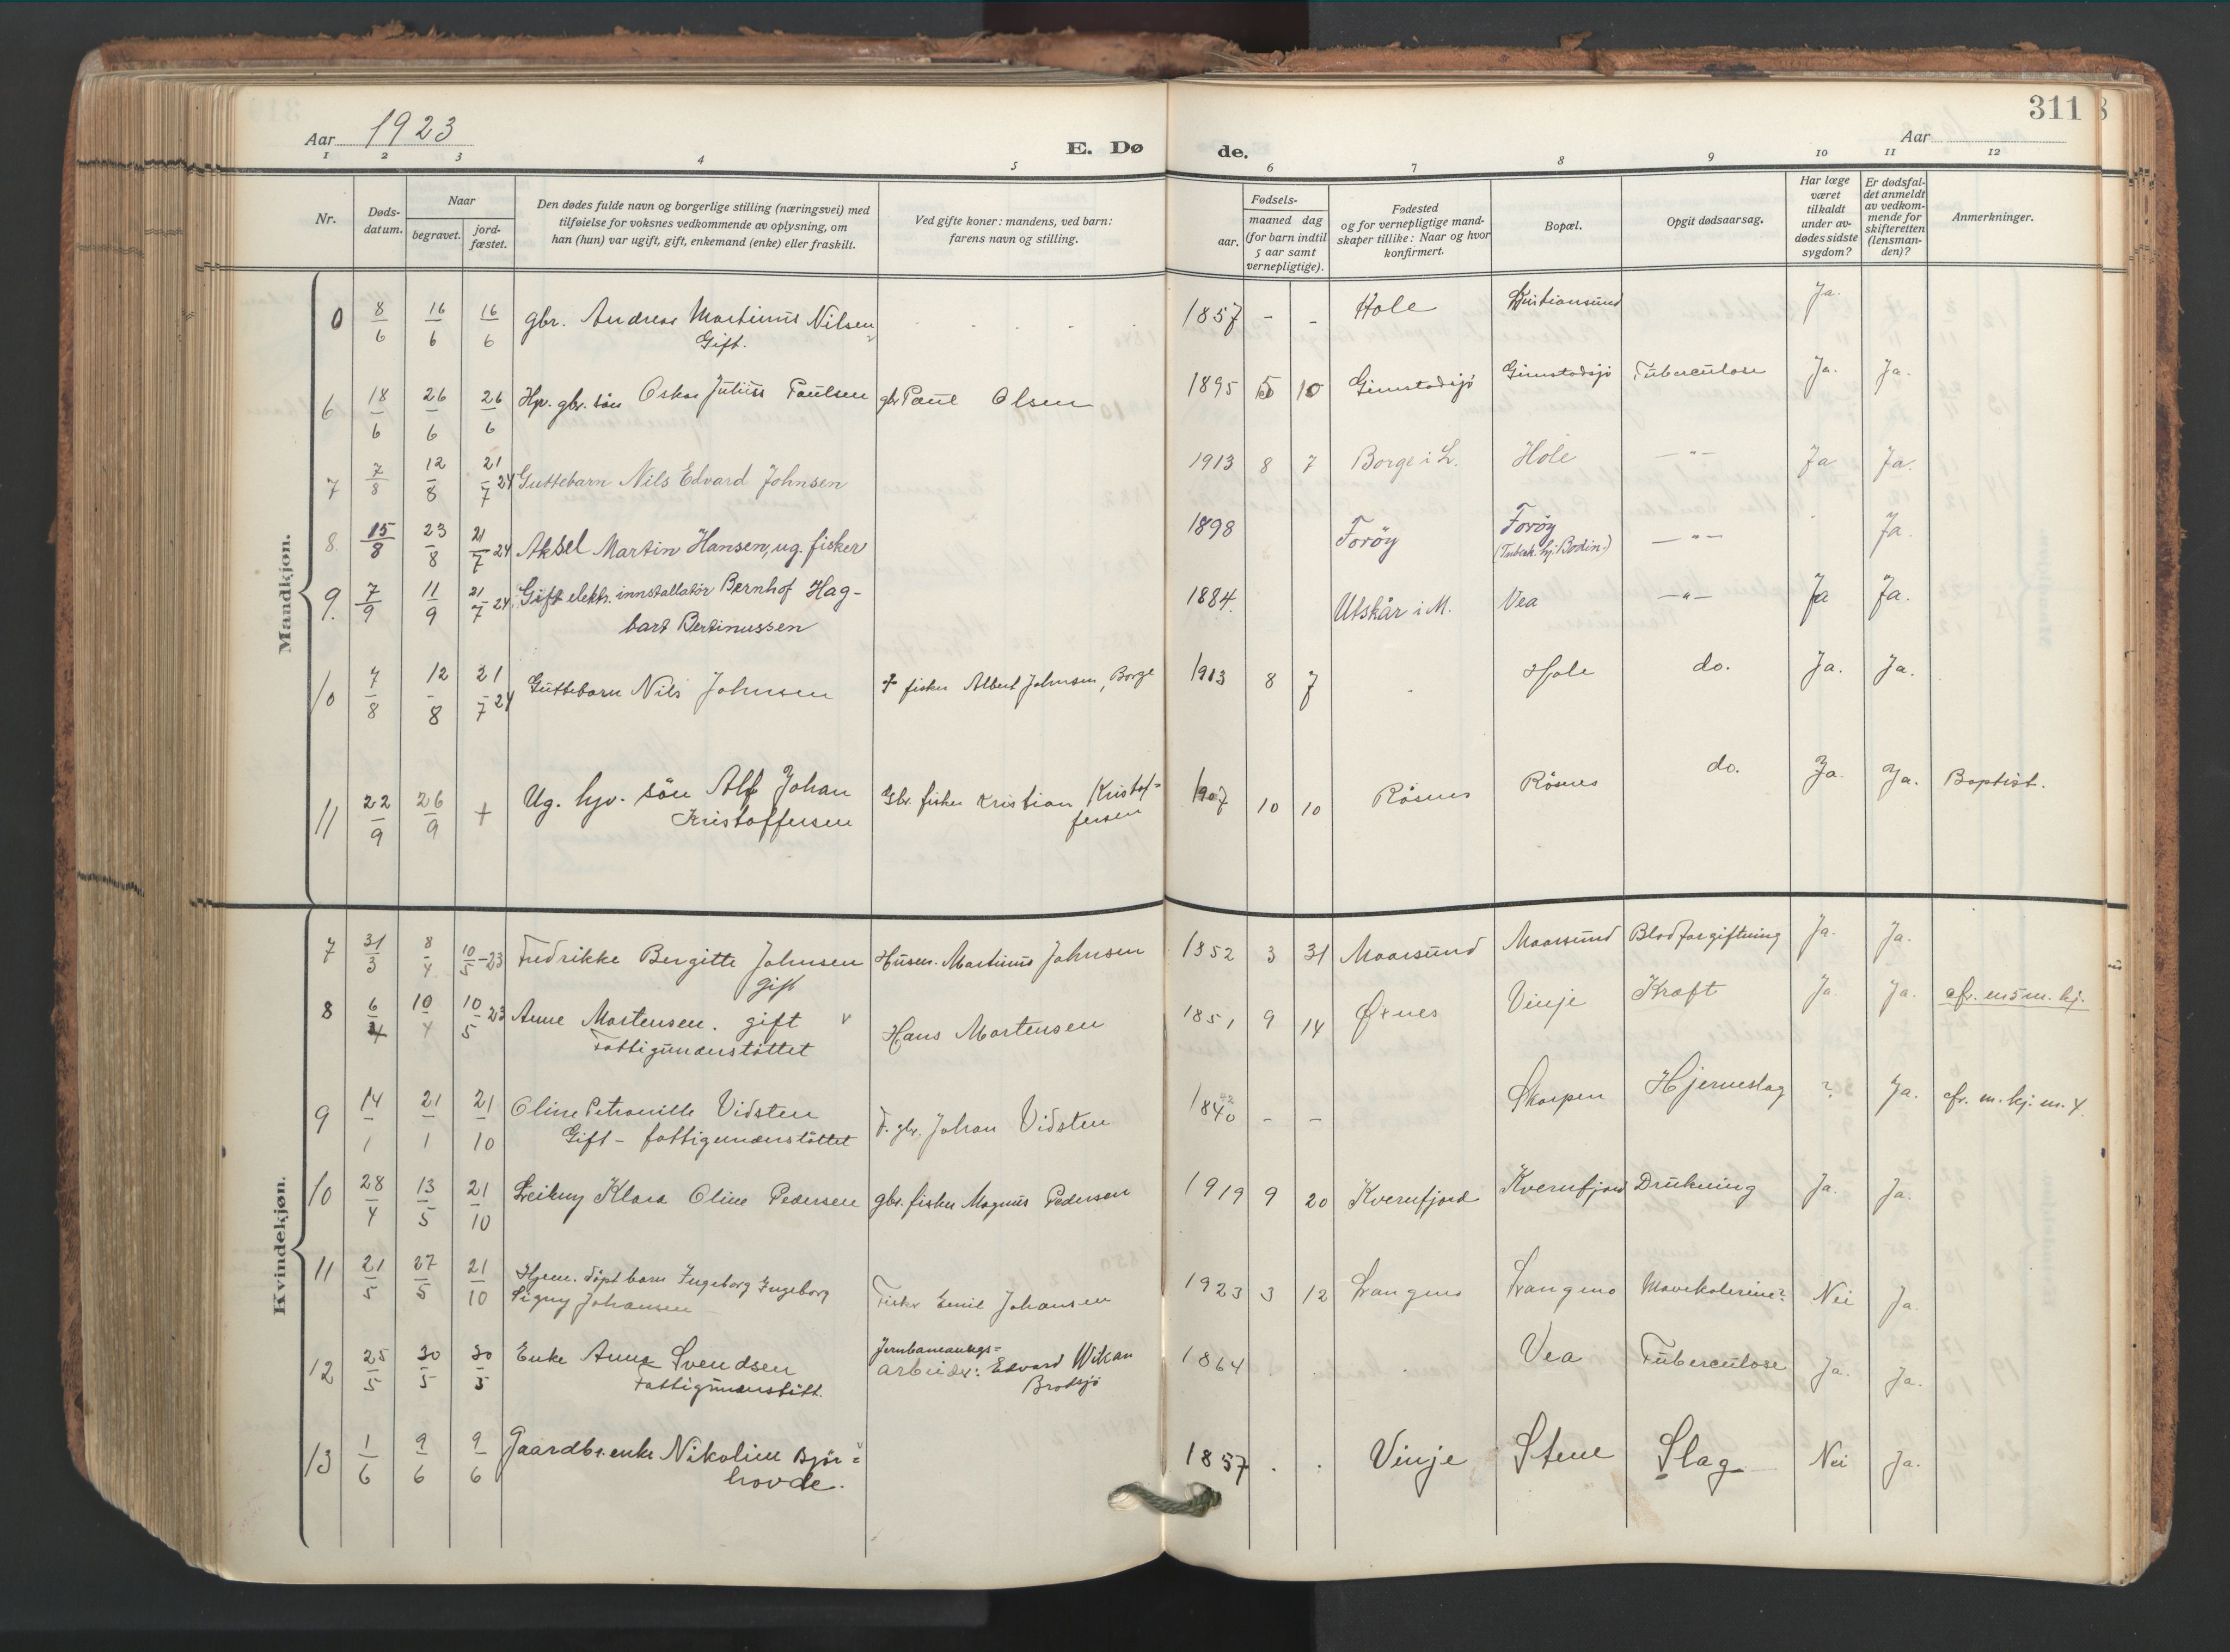 311
Aar 1923
E. Dø
de.
Aar
1 2 3 4 5 6 7 8 9 10 11 12
Nr.
Døds-
datum.
Naar
begravet.
jord-
fæstet.
Den dødes fulde navn og borgerlige stilling (næringsvei) med
tilføielse for voksnes vedkommende av oplysning, om
han (hun) var ugift, gift, enkemand (enke) eller fraskilt.
Ved gifte koner: mandens, ved barn:
farens navn og stilling.
Fødsels-
aar.
maaned dag
(for barn indtil
5 aar samt
vernepligtige).
Fødested
og for vernepligtige mand-
skaper tillike: Naar og hvor
konfirmert.
Bopæl.
Opgit dødsaarsag.
Har læge
været
tilkaldt
under av-
dødes sidste
sygdom?
Er dødsfal-
det anmeldt
av vedkom-
mende for
skifteretten
(lensman-
den)?
Anmerkninger.
Mandkjøn.
0 8/6 16/6 16/6 gbr. Andreas Martinus Nilsen 1857 - - Hole Kristiansund Ja.
Gift.
6 18/6 26/6 26/6 Hjv. gbr. søn Oskar Julius Paulsen gbr Paul Olsen 1895 5 10 Gimstadsjö Gimstadsjö Tuberculose Ja. Ja.
7 7/8 12/8 21/7-24 Guttebarn Nils Edvard Johnsen 1913 8 7 Borge i L. Hole -"- Ja Ja.
8. 15/8 23/8 21/7-24 Aksel Martin Hansen, ug. fisker 1898 Forøy Forøy -"- Ja.
(Tuberk. hj. Bodin.)
9. 7/9 11/9 21/7-24 Gift elektr. innstallatör Bernhof Hag-
bart Bertinussen 1884. Utskår i M. Vea -"- Ja Ja.
10 7/8 12/8 21/7-24 Guttebarn Nils Johnsen + fisker Albert Johnsen, Borge 1913 8 7 Hole do. Ja. Ja.
11 22/9 26/9 + Ug. hjv. sön Alf Johan Gbr. fisker Kristian Kristof-
Kristoffersen fersen 1907 10 10 Rösnes Rösnes do. Ja. Ja. Baptist.
Kvindekjøn.
7 31/3 8/4 10/5-23 Fredrikke Bergitte Johnsen Husm. Martinus Johnsen 1852 3 31 Maarsund Maarsund Blodforgiftning Ja. Ja.
gift
8 6/4 10/4 10/5-23 Anne Mortensen. gift Hans Mortensen 1851 9 14 Øxnes Vinje Kræft Ja. Ja. cfr. m 5 m. kj.
Fattigunderstöttet
9 14/1 21/1 21/10 Oline Petronille Vidsten F. gbr. Johan Vidsten 1840 - - Skarpen Hjerneslag ? Ja. cfr. m. kj. m. 4.
Gift - fattigunderstöttet
10 28/4 13/5 21/10 Leikny Klara Oline Pedersen gbr. fisker Magnus Pedersen 1919 9 20 Kvernfjord Kvernfjord Drukning Ja. Ja.
11 21/5 27/5 21/10 Hjem. döpt barn Ingeborg Ingeborg
Signy Johansen Fisker Emil Johansen 1923 3 12 Langmo Langmo Mavekolerine? Nei Ja.
12 25/5 30/5 30/5 Enke Anna Svendsen Jernbaneanlegs-
Fattigunderstött. arbeider: Edvard Wikan 1864 Vea Tuberculose Ja. Ja.
Brotsjö
13 1/6 9/6 9/6 Gaardbr.enke Nikoline Björ- 1857 Vinje Stene Slag Nei Ja.
hovde.